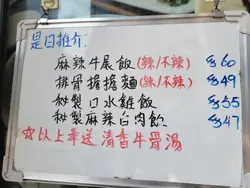 是日推介:
麻辣牛展飯(辣/不辣) $60
排骨擔擔麵(辣/不辣) $49
秘製口水雞飯 $55
秘製麻辣白肉飯 $47
☆以上奉送清香牛骨湯